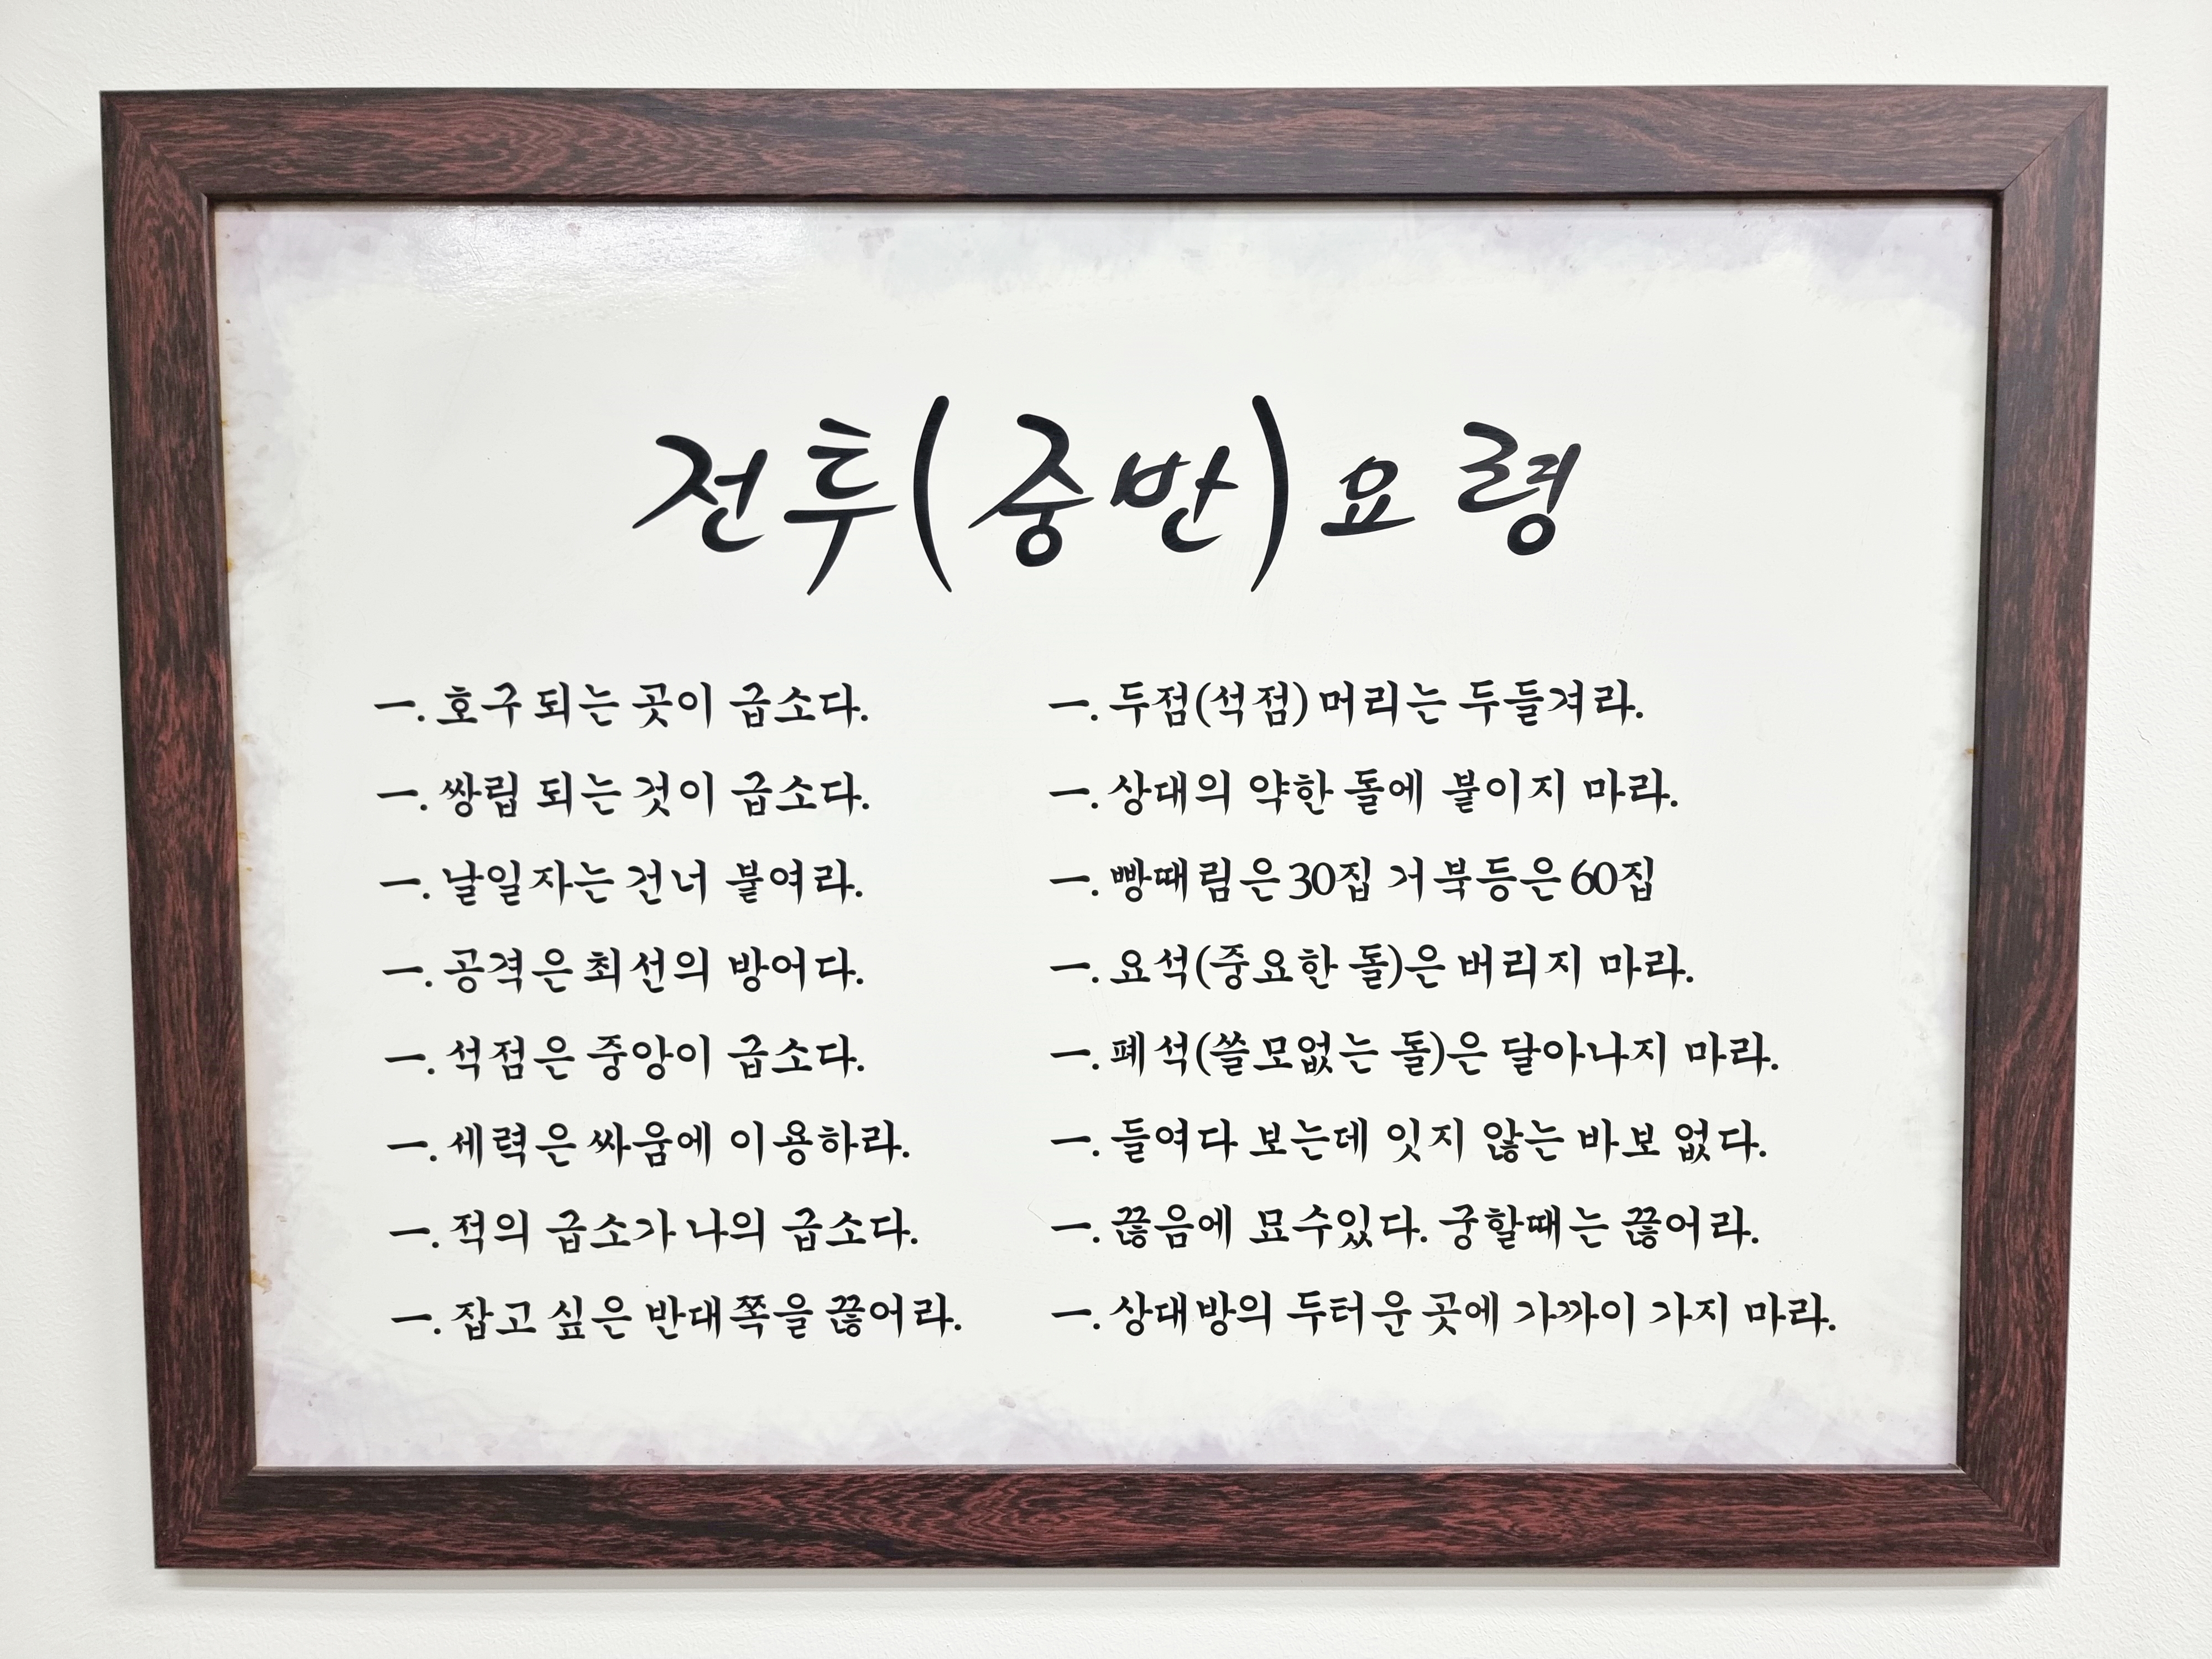 전투(중반)요령
一. 호구 되는 곳이 급소다.
一. 쌍립 되는 것이 급소다.
一. 날일자는 건너 붙여라.
一. 공격은 최선의 방어다.
一. 석점은 중앙이 급소다.
一. 세력은 싸움에 이용하라.
一. 적의 급소가 나의 급소다.
一. 잡고 싶은 반대쪽을 끊어라.
一. 두점(석점) 머리는 두들겨라.
一. 상대의 약한 돌에 붙이지 마라.
一. 빵때림은 30집 거북등은 60집
一. 요석(중요한 돌)은 버리지 마라.
一. 폐석(쓸모없는 돌)은 달아나지 마라.
一. 들여다 보는데 잇지 않는 바보 없다.
一. 끊음에 묘수있다. 궁할때는 끊어라.
一. 상대방의 두터운 곳에 가까이 가지 마라.